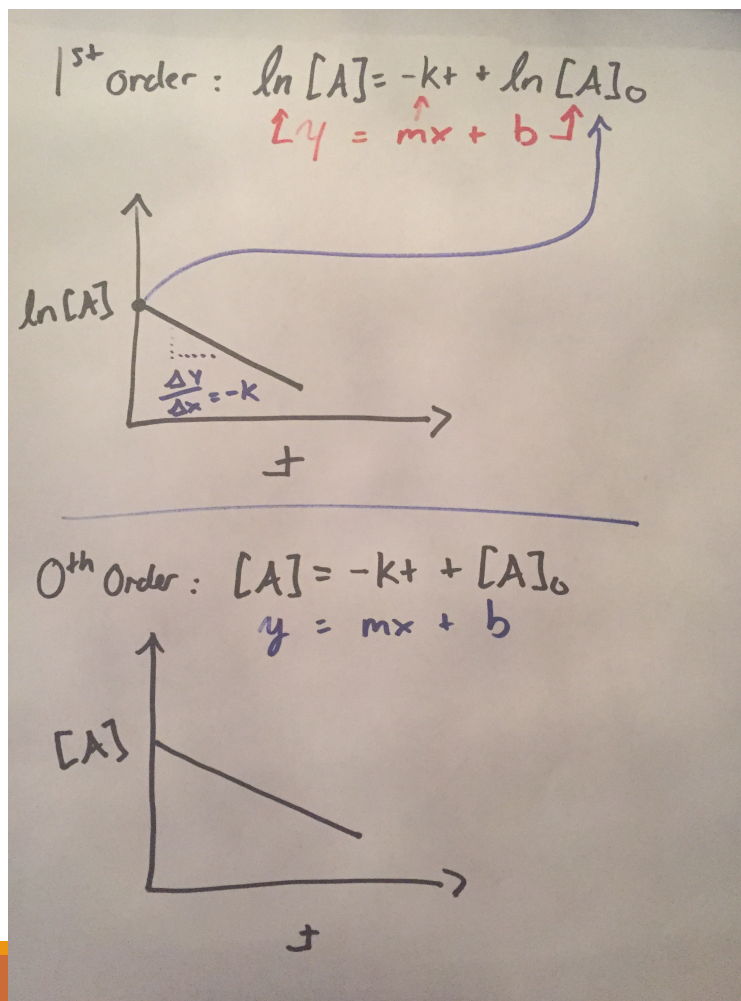 1st order: ln [A] = -kt + ln [A]0
y = mx + b
ln [A]
ΔY
Δx = -k
t
0th Order: [A] = -kt + [A]0
y = mx + b
[A]
t